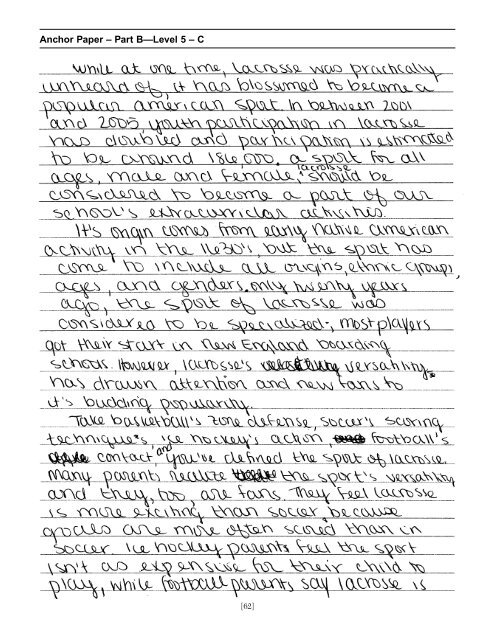 Anchor Paper – Part B—Level 5 – C
While at one time, lacrosse was practically
unheard of, it has blossomed to become a
popular american sport. In between 2001
and 2005, youth participation in lacrosse
has doubled and participation is estimated
to be around 186,000. a sport for all
ages, male and female, lacrosse should be
considered to become a part of our
school's extracurriclar activities.
It's origin comes from early native american
activity in the 1630's, but the sport has
come to include all origins, ethnic groups,
ages, and genders. only twenty years
ago, the sport of lacrosse was
considered to be specialized; most players
got their start in New England boarding
schools. However, lacrosse's versatility
has drawn attention and new fans to
it's budding popularity.
Take basketball's zone defense, soccer's scoring
technique's, ice hockey's action football's
contact, and you've defined the sport of lacrosse.
many parents realize the sport's versatility
and they, too, are fans. They feel lacrosse
is more exciting than soccer because
goals are more often scored than in
soccer. Ice hockey parents feel the sport
isn't as expensive for their child to
play, while football parents say lacrosse is
[62]